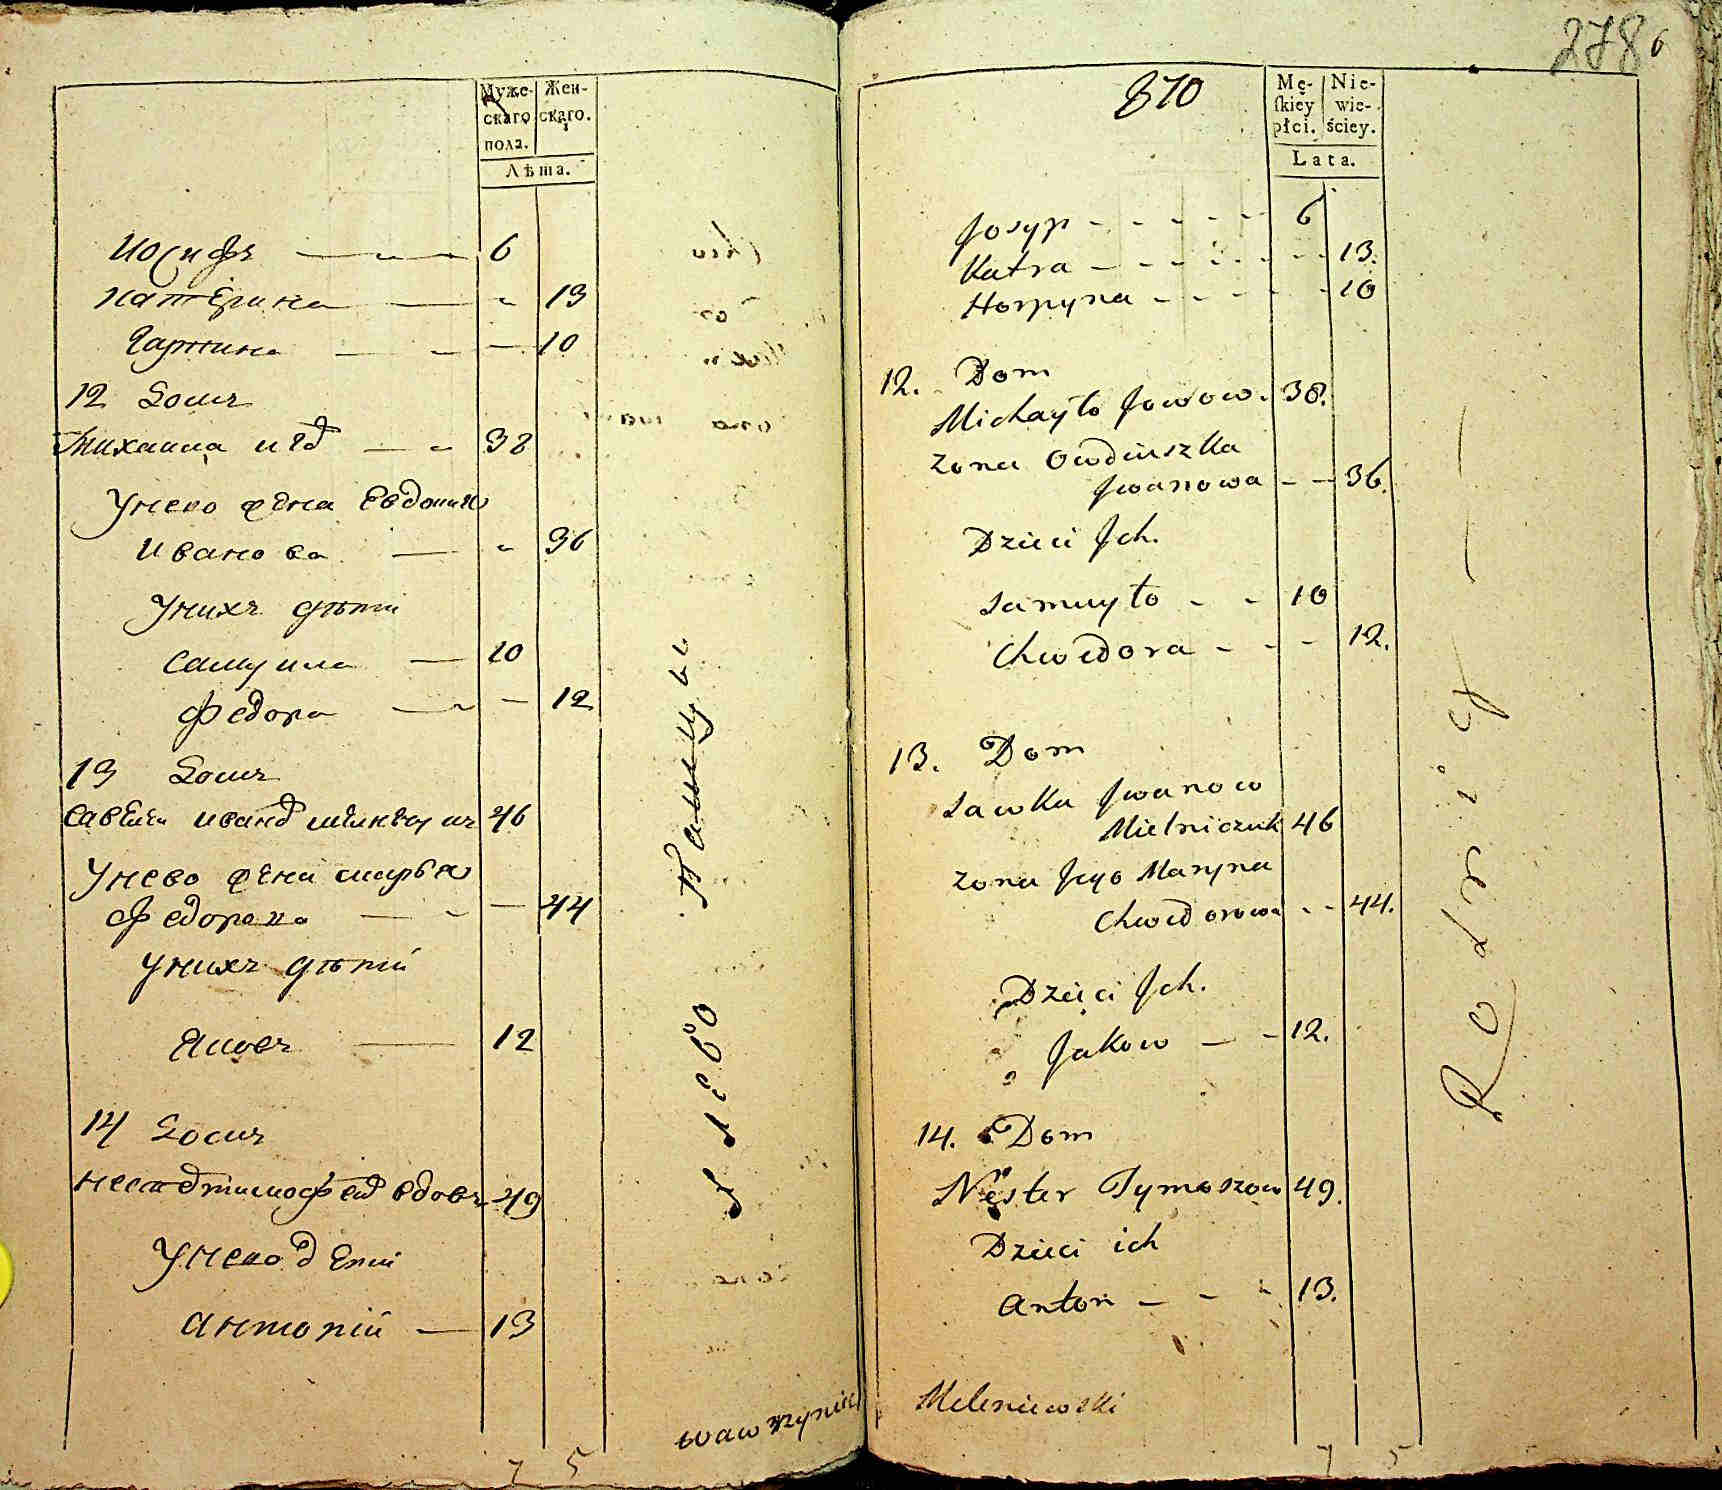 Муже-
скаго
пола.
Жен-
скаго.
Лѣта.
Иосифъ 6
Катерина 13
Гарпина 10
12 Домъ
Михаила 38
У нево жена Евдокия
Иванова 36
У нихъ дѣти
Самуила 10
Федора 12
13 Домъ
Савела Иванов 46
У нево жена Марья
Федорова 44
У нихъ дѣти
Яковъ 12
14 Домъ
вдовъ 49
У нево дети
Антоний 13
Wawrzyniec
7 5
278
870
Mę-
skiey
płci.
Nie-
wie-
ściey.
Lata.
Josyp 6
Katra 13.
Horpyna 10
12. Dom
Michayło Jowow. 38.
Zona Owdiuszka
Jwanowa 36.
Dzieci Jch.
Samuyło 10
Chwedora 12.
13. Dom
Sawka Jwanow
Mielniczuk 46
Zona Jego Maryna
Chwedorowa 44.
Dzieci Jch.
Jakow 12.
14. Dom
Nester Tymoszow 49.
Dzieci ich
Anton 13.
Meleniewski
7 5